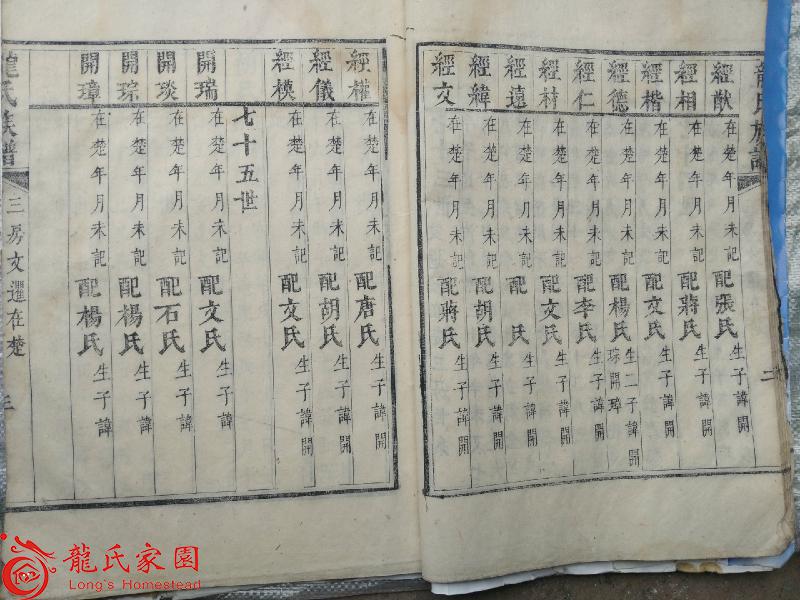 龍氏族譜 二
經猷 在楚年月未記 配張氏 生子諱開
經相 在楚年月未記 配蔣氏 生子諱開
經楷 在楚年月未記 配文氏 生子諱開
經德 在楚年月未記 配楊氏 生二子諱開琮開璋
經仁 在楚年月未記 配李氏 生子諱開
經材 在楚年月未記 配文氏 生子諱開
經遠 在楚年月未記 配 氏 生子諱開
經緯 在楚年月未記 配胡氏 生子諱開
經文 在楚年月未記 配蔣氏 生子諱開
經權 在楚年月未記 配唐氏 生子諱開
經儀 在楚年月未記 配胡氏 生子諱開
經模 在楚年月未記 配文氏 生子諱開
七十五世
開瑞 在楚年月未記 配文氏 生子諱
開琰 在楚年月未記 配石氏 生子諱
開琮 在楚年月未記 配楊氏 生子諱
開璋 在楚年月未記 配楊氏 生子諱
龍氏族譜 三房文暹在楚 三
龍氏家園
Long's Homestead